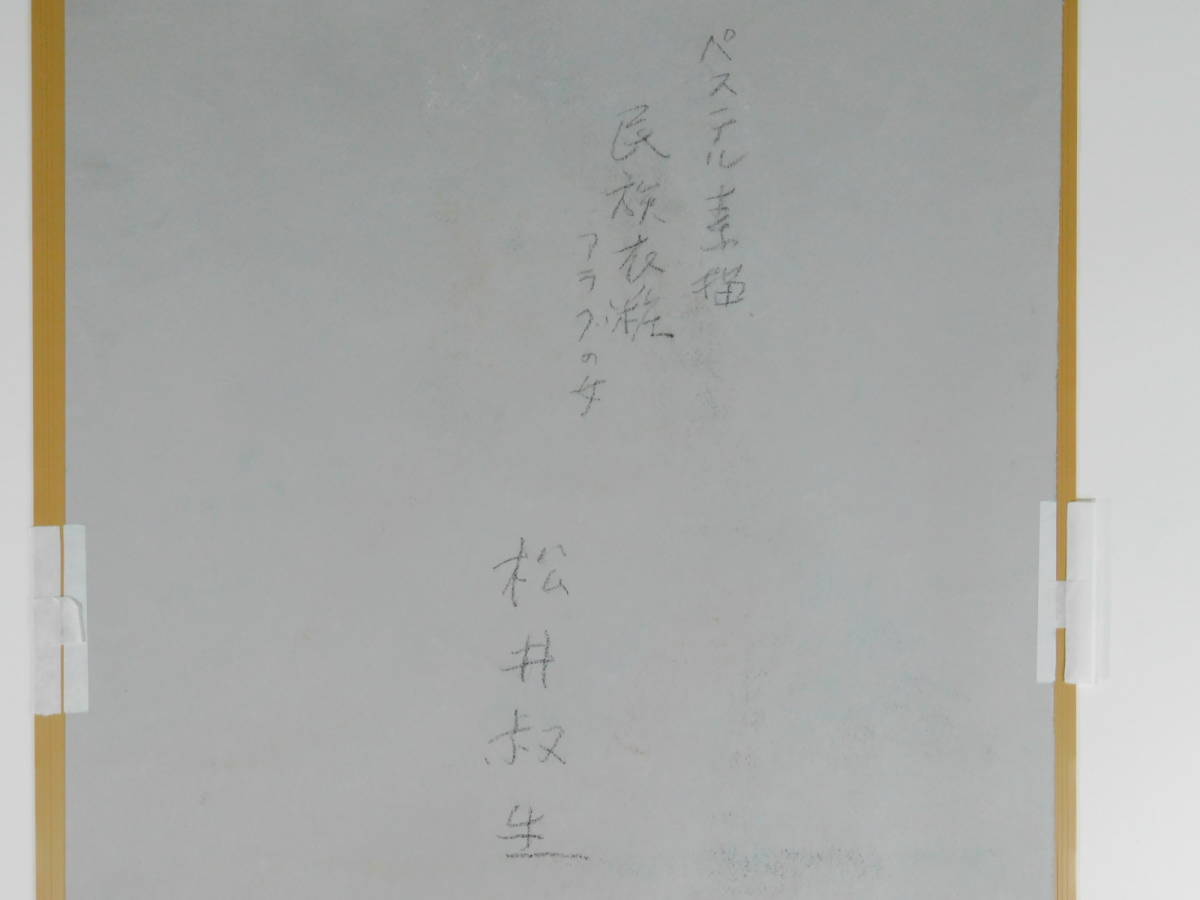 ペステル素描
民族衣粧
アラブの女
松井叔生